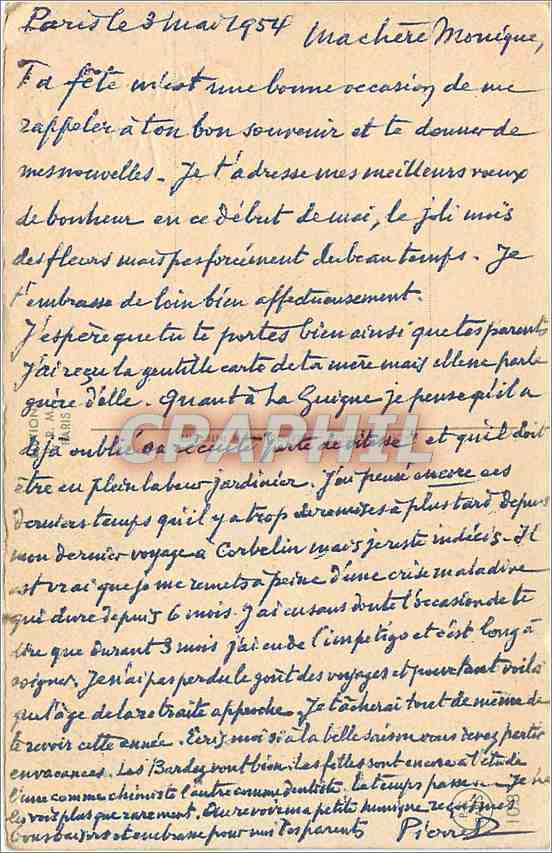 Paris le 3 mai 1954
Ma chère Monique,
Ta fête m'est une bonne occasion de me
rappeler à ton bon souvenir et te donner de
mes nouvelles - Je t'adresse mes meilleurs vœux
de bonheur en ce début de mai, le joli mois
des fleurs mais pas forcément du beau temps - Je
t'embrasse de loin bien affectueusement.
J'espère que tu te portes bien ainsi que tes parents
J'ai reçu la gentille carte de ta mère mais elle ne parle
guère d'elle. Quant à La Guigne je pense qu'il a
déjà oublié sa "perte de vitesse" et qu'il doit
être en plein labeur jardinier. J'ai pensé encore ces
derniers temps qu'il y a trop de remises à plus tard depuis
mon dernier voyage à Corbelin mais je reste indécis - Il
est vrai que je me remets à peine d'une crise maladive
qui dure depuis 6 mois. J'ai eu sans doute l'occasion de te
dire que durant 3 mois j'ai eu de l'impétigo et c'est long à
soigner. Je n'ai pas perdu le goût des voyages et pourtant voilà
que l'âge de la retraite approche. Je tâcherai tout de même de
te revoir cette année. Ecris moi si à la belle saison vous devez partir
en vacances. Les Bardez vont bien. Les filles sont encore à l'étude
l'une comme chimiste l'autre comme dentiste. Le temps passe - Je ne
les vois plus que rarement. Au revoir ma petite Monique reçois mes
bons baisers et embrasse pour moi tes parents Pierre
CPAPHIL
PARIS